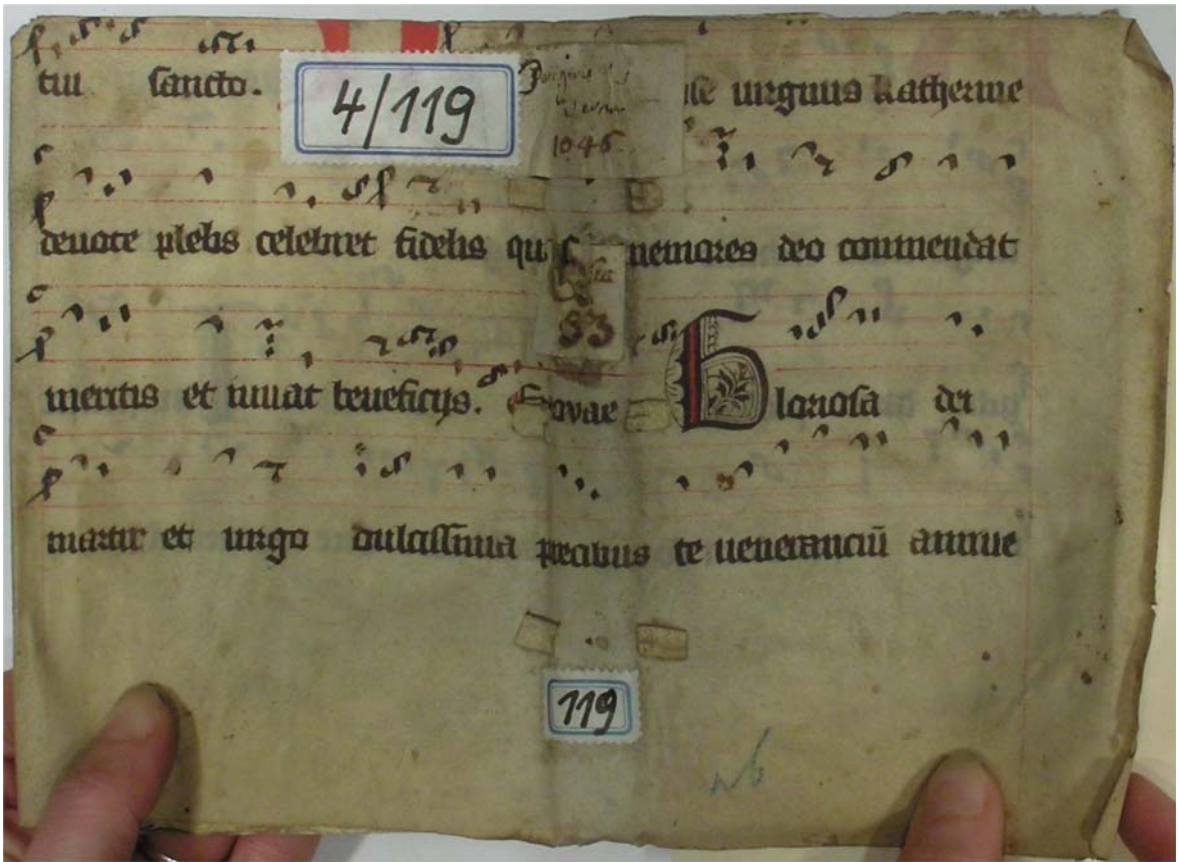 tui sancto. uirginis katherine
4/119
1046
deuote plebs celebret fidelis qui nemores deo commendat
53
meritis et iuuat beneficijs. Evovae Gloriosa dei
martir et uirgo dulcissima precibus te ueneranciū annue
119